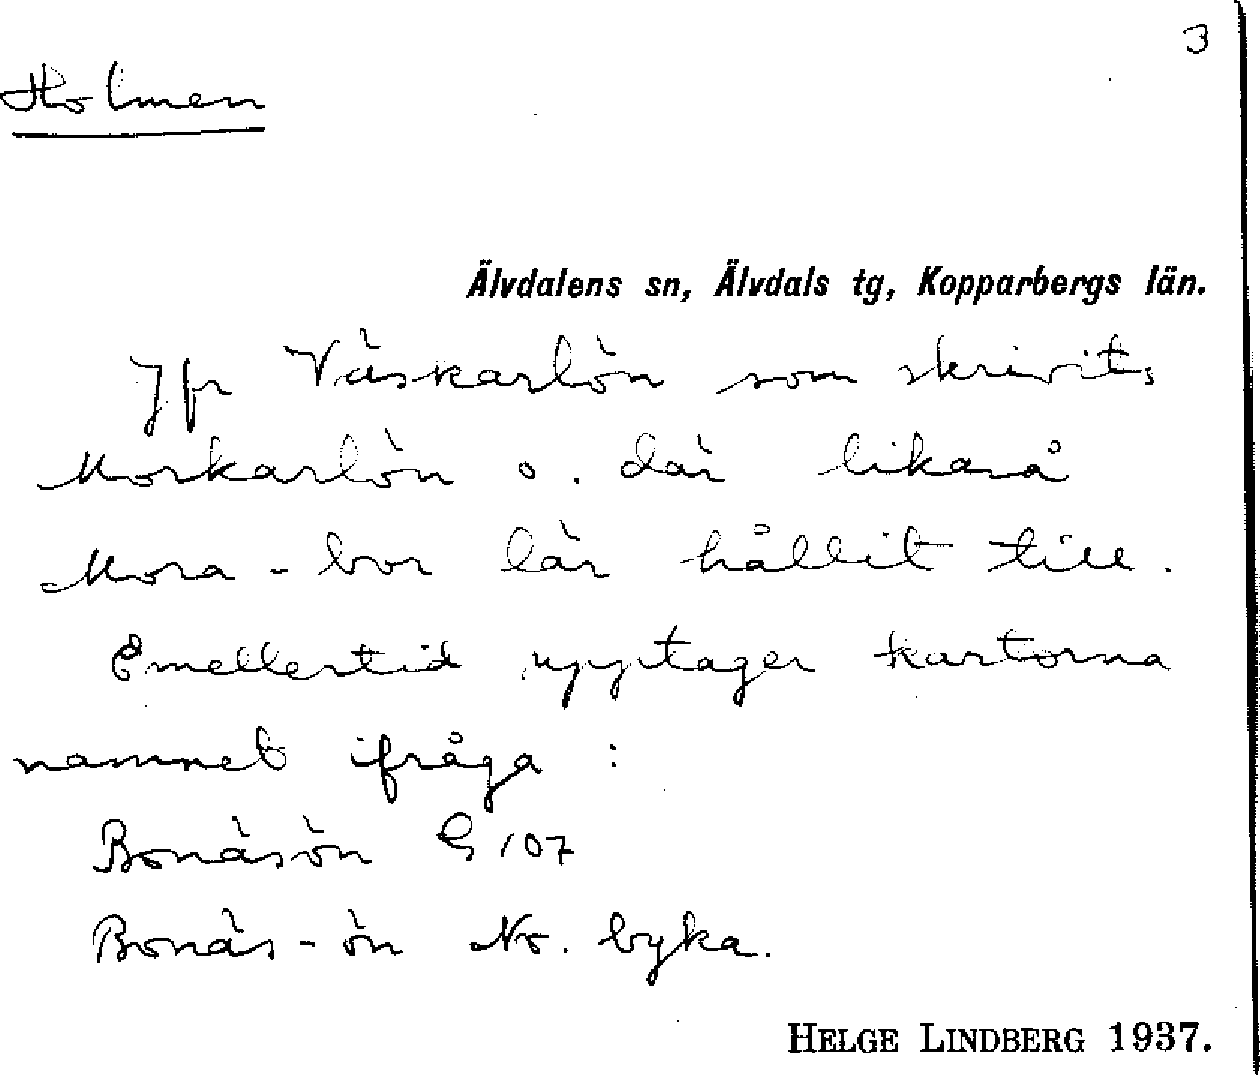 3
Holmen
Älvdalens sn, Älvdals tg, Kopparbergs län.
Jfr Väskarlön som skrivits
Morkarlön o. där likaså
Mora-bor lär hållit till.
Emellertid upptager kartorna
namnet ifråga :
Bonäsön G 107
Bonäs-ön No. byka.
HELGE LINDBERG 1937.